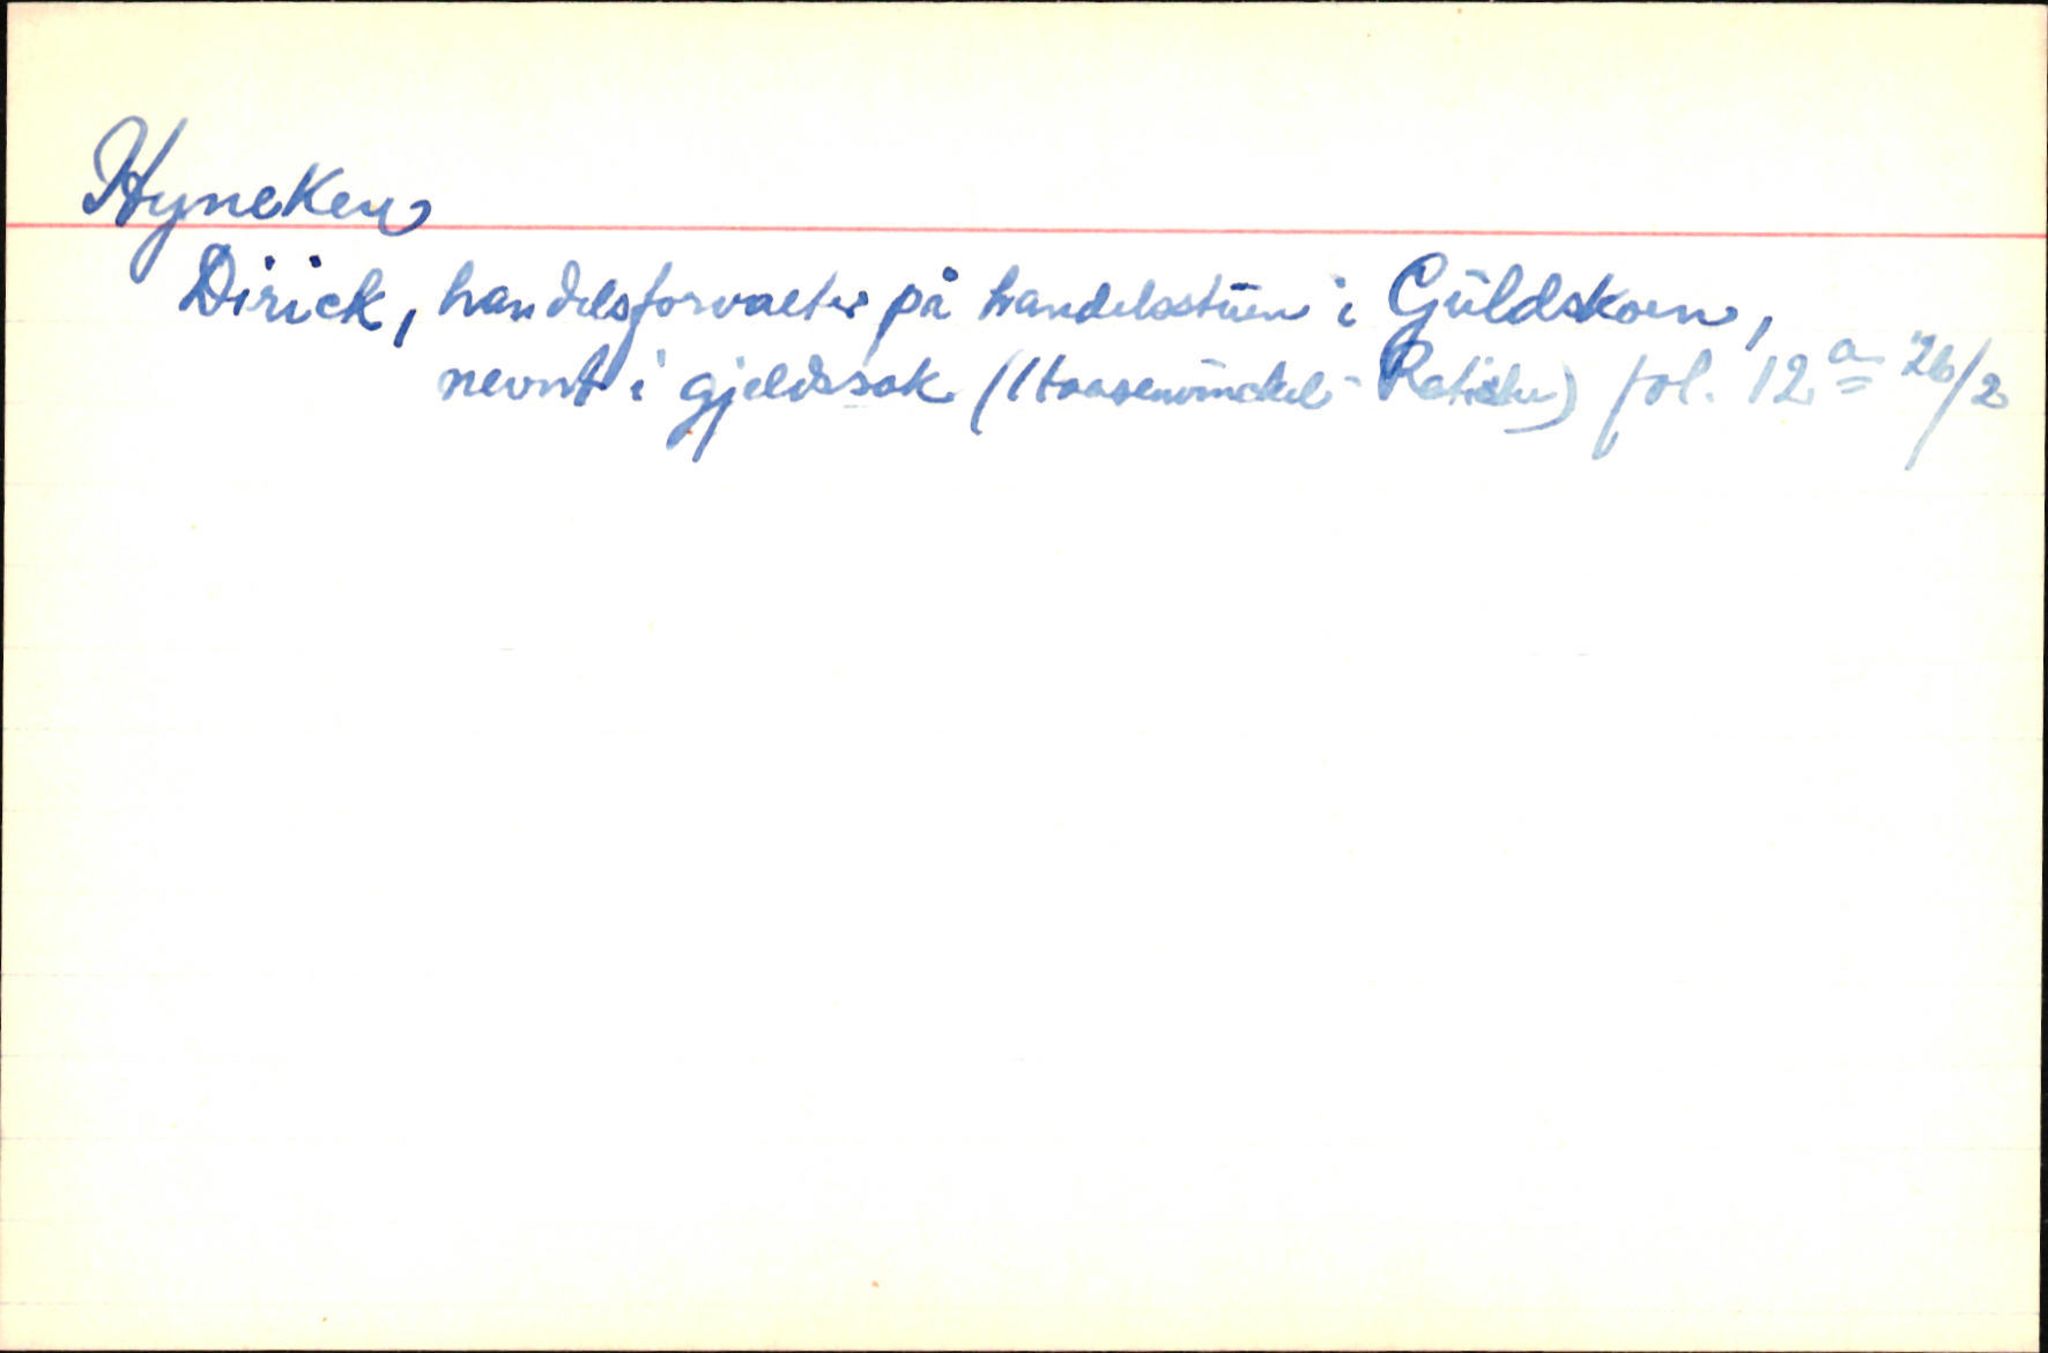 Hyneken
Dirick, handelsforvalter på handelsstuen i Güldskoen,
nevnt i gjeldssak (Haasenwinckel - fol. 12 a 26/2